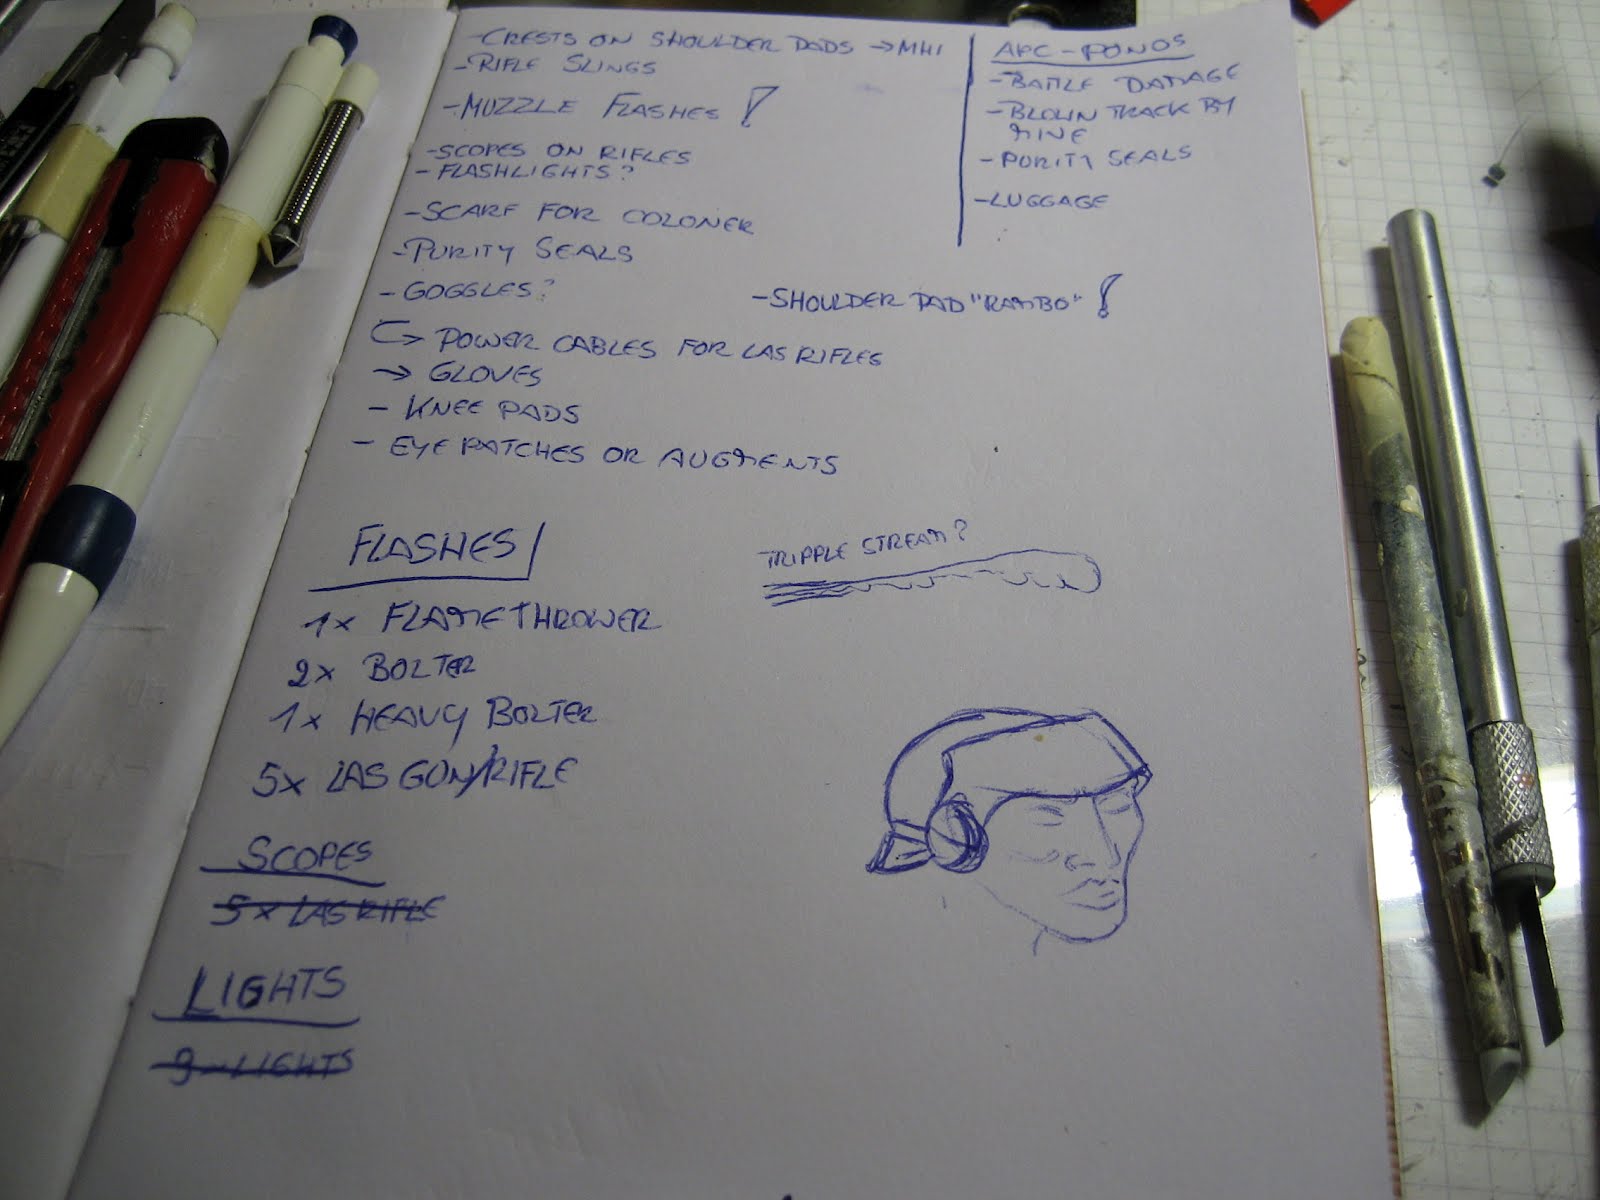 - CRESTS ON SHOULDER PADS → MHI
- RIFLE SLINGS
- MUZZLE FLASHES !
- SCOPES ON RIFLES
- FLASHLIGHTS?
- SCARF FOR COLONER
- PURITY SEALS
- GOGGLES?
- SHOULDER PAD "RAMBO" !
↳ POWER CABLES FOR LAS RIFLES
→ GLOVES
- KNEE PADS
- EYE PATCHES OR AUGMENTS
APC - PONOS
- BATTLE DAMAGE
- BLOWN TRACK BY
MINE
- PURITY SEALS
- LUGGAGE
FLASHES
1x FLAMETHROWER
2x BOLTER
1x HEAVY BOLTER
5x LAS GUN/RIFLE
TRIPPLE STREAM?
SCOPES
5x LAS RIFLE
LIGHTS
9 - LIGHTS